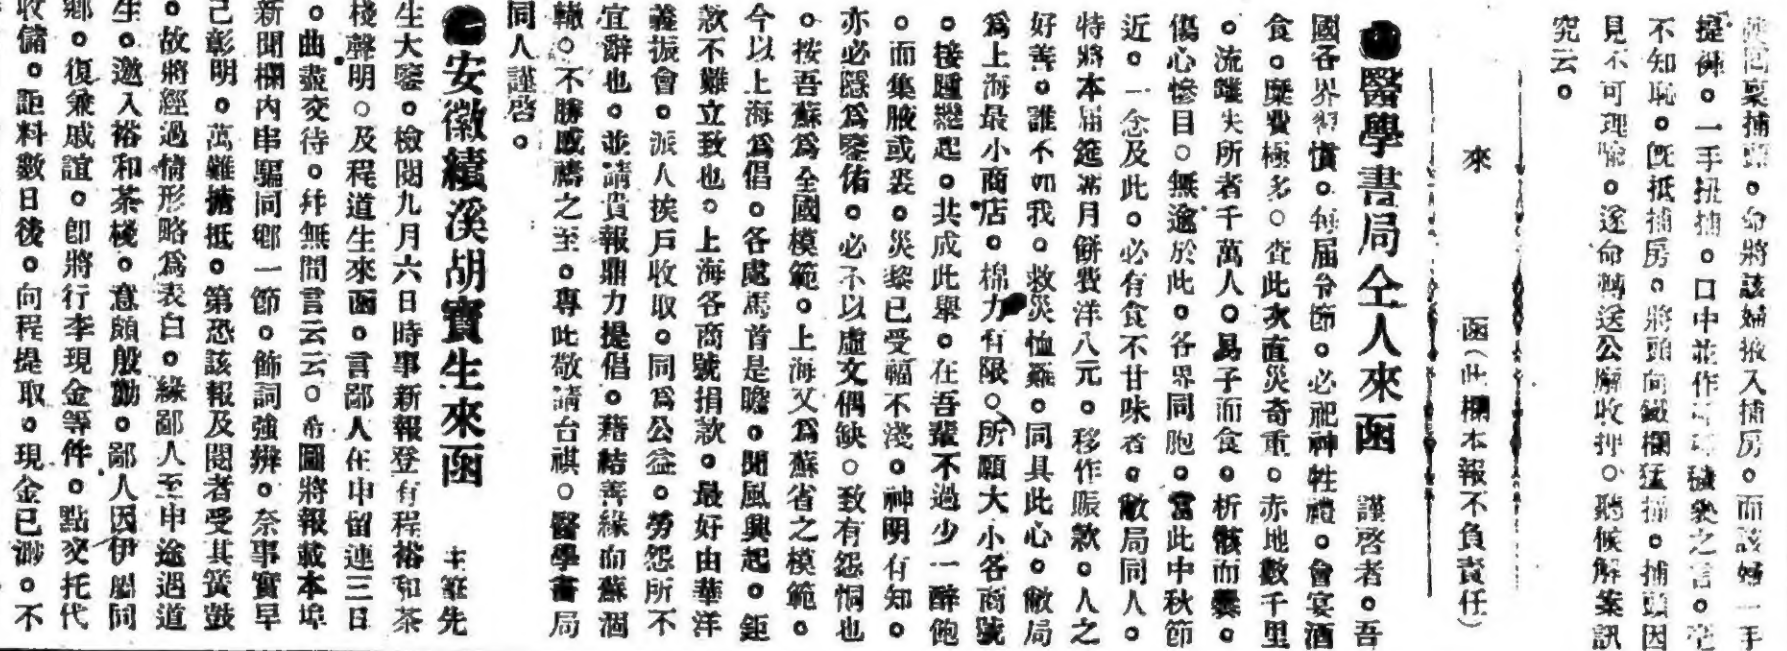 稟捕頭。命將該婦掖入捕房。而該婦一手
提褲。一手扭捕。口中並作穢褻之言。
不知恥。旣抵捕房。將頭向鐵欄猛撞。捕頭因
見不可理喻。遂命轉送公廨收押。聽候解案訊
究云。
來 函(此欄本報不負責任)
●醫學書局仝人來函 謹啓者。吾
國各界習慣。每届令節。必祀神牲禮。會宴酒
食。糜費極多。查此次直災奇重。赤地數千里
。流離失所者千萬人。易子而食。析骸而爨。
傷心慘目。無逾於此。各界同胞。當此中秋節
近。一念及此。必有食不甘味者。敝局同人。
特將本屆筵席月餅費洋八元。移作賑款。人之
好善。誰不如我。救災恤難。同具此心。敝局
爲上海最小商店。棉力有限。所願大小各商號
。接踵繼起。共成此舉。在吾輩不過少一醉飽
。而集腋成裘。災黎已受福不淺。神明有知。
亦必隱爲鑒佑。必不以虛文偶缺。致有怨恫也
。按吾蘇爲全國模範。上海又爲蘇省之模範。
今以上海爲倡。各處馬首是瞻。聞風興起。鉅
款不難立致也。上海各商號捐款。最好由華洋
義振會。派人挨戶收取。同爲公益。勞怨所不
宜辭也。並請貴報鼎力提倡。藉結善緣而蘇涸
轍。不勝感禱之至。專此敬請台祺。醫學書局
同人謹啓。
●安徽績溪胡寶生來函 主筆先
生大鑒。檢閱九月六日時事新報登有程裕和茶
棧聲明。及程道生來函。言鄙人在申留連三日
。曲盡交待。幷無間言云云。希圖將報載本埠
新聞欄內串騙同鄉一節。飾詞強辨。奈事實早
已彰明。萬難搪抵。第恐該報及閱者受其簧鼓
。故將經過情形略爲表白。緣鄙人至申途遇道
生。邀入裕和茶棧。意頗殷勤。鄙人因伊屬同
鄉。復兼戚誼。卽將行李現金等件。點交托代
收儲。詎料數日後。向程提取。現金已渺。不